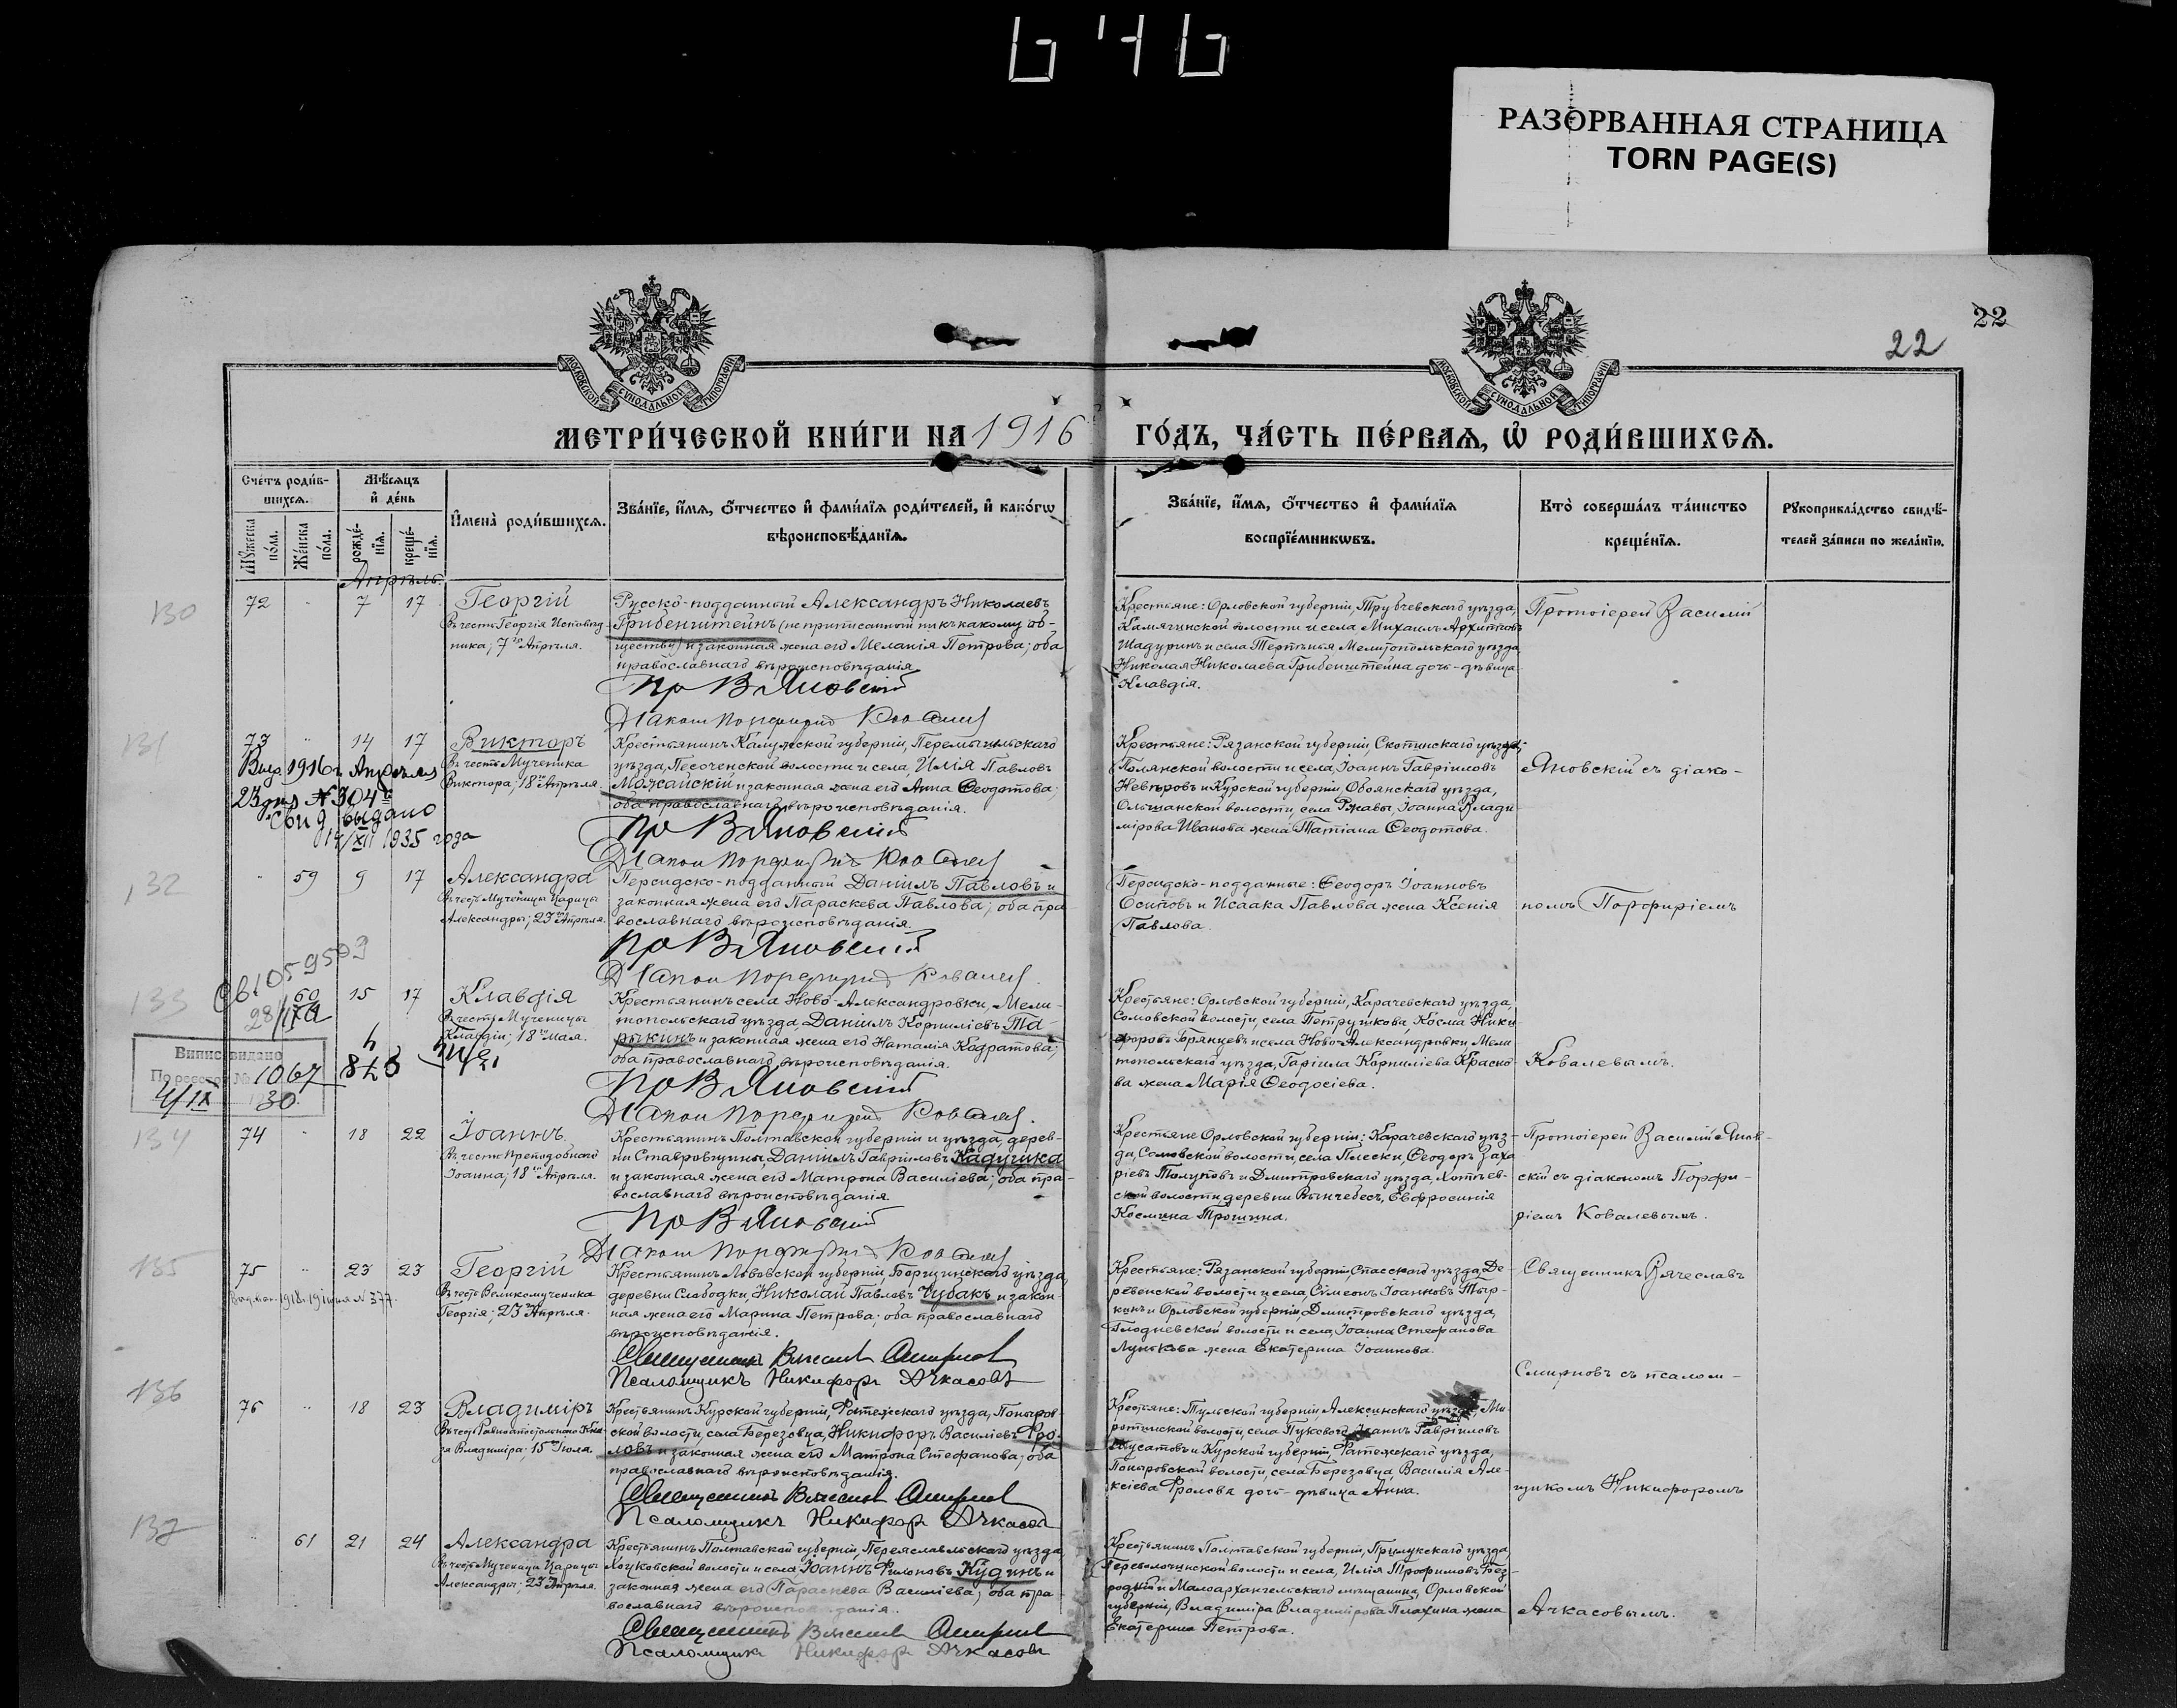 646
РАЗОРВАННАЯ СТРАНИЦА
TORN PAGE(S)
22
22
МОСКОВСКОЙ СѴНОДАЛЬНОЙ ТИПОГРАФІИ
МОСКОВСКОЙ СѴНОДАЛЬНОЙ ТИПОГРАФІИ
МЕТРИ́ЧЕСКОЙ КНИ́ГИ НА 1916 ГО́ДЪ, ЧА́СТЬ ПЕ́РВАѦ, Ѡ҆ РОДИ́ВШИХСѦ.
Сче́тъ роди́в-
шихсѧ.
Мѣ́сѧцъ
и҆ де́нь
Мꙋ́жеска по́ла.
Же́нска по́ла.
рожде́-
нїѧ.
креще́-
нїѧ.
И҆мена̀ роди́вшихсѧ.
Зва́нїе, и҆́мѧ, ѻ҆́тчество и҆ фамн́лїѧ роди́телей, и҆ како́гѡ
вѣроисповѣ́данїѧ.
Зва́нїе, и҆́мѧ, ѻ҆́тчество и҆ фами́лїѧ
воспрїе́мникѡвъ.
Кто̀ соверша́лъ та́инство
креще́нїѧ.
Рꙋкоприкла́дство свидѣ́-
телей за́писи по жела́нїю.
Апрѣль.
130
72 " 7 17
Георгій
Въ честь Георгія Исповѣд-
ника; 7го Апрѣля.
Русско-подданный Александръ Николаевъ
Грибенштейнъ (не приписанный ни къ какому об-
ществу) и законная жена его Меланія Петрова; оба
православнаго вѣроисповѣданія.
Пр В Яновскій
Діаконъ Порфирій Ковалевъ
Крестьяне: Орловской губерніи, Трубчевскаго уѣзда,
волости и села Михаилъ Архиповъ
Шадуринъ и села Терпѣнья Мелитопольскаго уѣзда
Николая Николаева Грибенштейна дочь - дѣвица
Клавдія.
Протоіерей Василій
131
73 " 14 17
Викторъ
Въ честь Мученика
Виктора; 18го Апрѣля.
Выд. 1916 г. Апрѣля
23 дня № 304
Свид выдано
14/XII 1935 года
Крестьянинъ Калужской губерніи, Перемышльскаго
уѣзда, Песоченской волости и села, Илія Павловъ
Можайскій и законная жена его Анна Ѳеодотова;
оба православнаго вѣроисповѣданія.
Пр В Яновскій
Діаконъ Порфирій Ковалевъ
Крестьяне: Рязанской губерніи, Скопинскаго уѣзда,
Полянской волости и села, Іоаннъ Гавріиловъ
Невѣровъ и Курской губерніи, Обоянскаго уѣзда,
Ольшанской волости, села Ржавы Іоанна Влади-
мірова Иванова жена Татіана Ѳеодотова.
Яновскій съ діако-
132
" 59 9 17
Александра
Въ честь Мученицы Царицы
Александры; 23го Апрѣля.
Персидско-подданный Даніилъ Павловъ и
законная жена его Параскева Павлова; оба пра-
вославнаго вѣроисповѣданія.
Пр В Яновскій
Діаконъ Порфирій Ковалевъ
Персидско-подданные: Ѳеодоръ Іоанновъ
Осиповъ и Исаака Павлова жена Ксенія
Павлова.
номъ Порфиріемъ
133
60 15 17
Клавдія
Въ честь Мученицы
Клавдіи; 18го Мая.
Випис видано
По реєстру № 1067
4/IX 30
Крестьянинъ села Ново-Александровки, Мели-
топольскаго уѣзда, Даніилъ Корниліевъ Та-
рыкинъ и законная жена его Наталія Кодратова;
оба православнаго вѣроисповѣданія.
Пр В Яновскій
Діаконъ Порфирій Ковалевъ
Крестьяне: Орловской губерніи, Карачевскаго уѣзда,
Сомовской волости, села Петрушкова, Косма Ники-
форовъ Брянцевъ и села Ново-Александровки, Мели-
топольскаго уѣзда, Гавріила Корниліева Красно-
ва жена Марія Ѳеодосіева.
Ковалевымъ.
134
74 " 18 22
Іоаннъ
Въ честь Преподобнаго
Іоанна; 18го Апрѣля.
Крестьянинъ Полтавской губерніи и уѣзда, дерев-
ни Ставровщины, Даніилъ Гавріиловъ Кадущка
и законная жена его Матрона Василіева; оба пра-
вославнаго вѣроисповѣданія.
Пр В Яновскій
Діаконъ Порфирій Ковалевъ
Крестьяне Орловской губерніи: Карачевскаго уѣз-
да, Сомовской волости, села Плески, Ѳеодоръ Заха-
ріевъ Полуповъ и Дмитровскаго уѣзда, Хотьев-
ской волости деревни Евфросинія
Космина Трошина.
Протоіерей Василій Янов-
скій съ діакономъ Порфи-
ріемъ Ковалевымъ.
135
75 " 23 23
Георгій
Въ честь Великомученика
Георгія; 23го Апрѣля.
№ 377.
Крестьянинъ Львовской губерніи, Борщинскаго уѣзда,
деревни Слободки, Николай Павловъ Чубакъ и закон-
ная жена его Марина Петрова; оба православнаго
вѣроисповѣданія.
Священникъ Вячеславъ Смирновъ
Псаломщикъ Никифоръ Ачкасовъ
Крестьяне: Рязанской губерніи, Спасскаго уѣзда, Де-
ревенской волости и села, Симеонъ Іоанновъ Тыр-
кинъ и Орловской губерніи, Дмитровскаго уѣзда,
Глодневской волости и села, Іоанна Стефанова
Лунькова жена Екатерина Іоаннова.
Священникъ Вячеславъ
Смирновъ съ псалом-
136
76 " 18 23
Владиміръ
Въ честь Равноапостольнаго Кня-
зя Владиміра; 15го Іюля.
Крестьянинъ Курской губерніи, Фатежскаго уѣзда, Поныров-
ской волости, села Березовца, Никифоръ Василіевъ Фро-
ловъ и законная жена его Матрона Стефанова; оба
православнаго вѣроисповѣданія.
Священникъ Вячеславъ Смирновъ
Псаломщикъ Никифоръ Ачкасовъ
Крестьяне: Тульской губерніи, Алексинскаго уѣзда, Ми-
ротинской волости, села Пуковова, Іоаннъ Гавріиловъ
и Курской губерніи, Фатежскаго уѣзда,
Поныровской волости, села Березовца, Василія Але-
ксіева Фролова дочь - дѣвица Анна.
щикомъ Никифоромъ
137
61 21 24
Александра
Въ честь Мученицы Царицы
Александры; 23го Апрѣля.
Крестьянинъ Полтавской губерніи, Переяславльскаго уѣзда,
волости и села Іоаннъ Филиповъ Кудинъ и
законная жена его Параскева Василіева; оба пра-
вославнаго вѣроисповѣданія.
Священникъ Вячеславъ Смирновъ
Псаломщикъ Никифоръ Ачкасовъ
Крестьянинъ Полтавской губерніи, Прилукскаго уѣзда,
Переволочинской волости и села, Илія Трофимовъ Без-
родній и Малоархангельскаго мѣщанина, Орловской
губерніи, Владиміра Владимірова Плахина жена
Екатерина Петрова.
Ачкасовымъ.